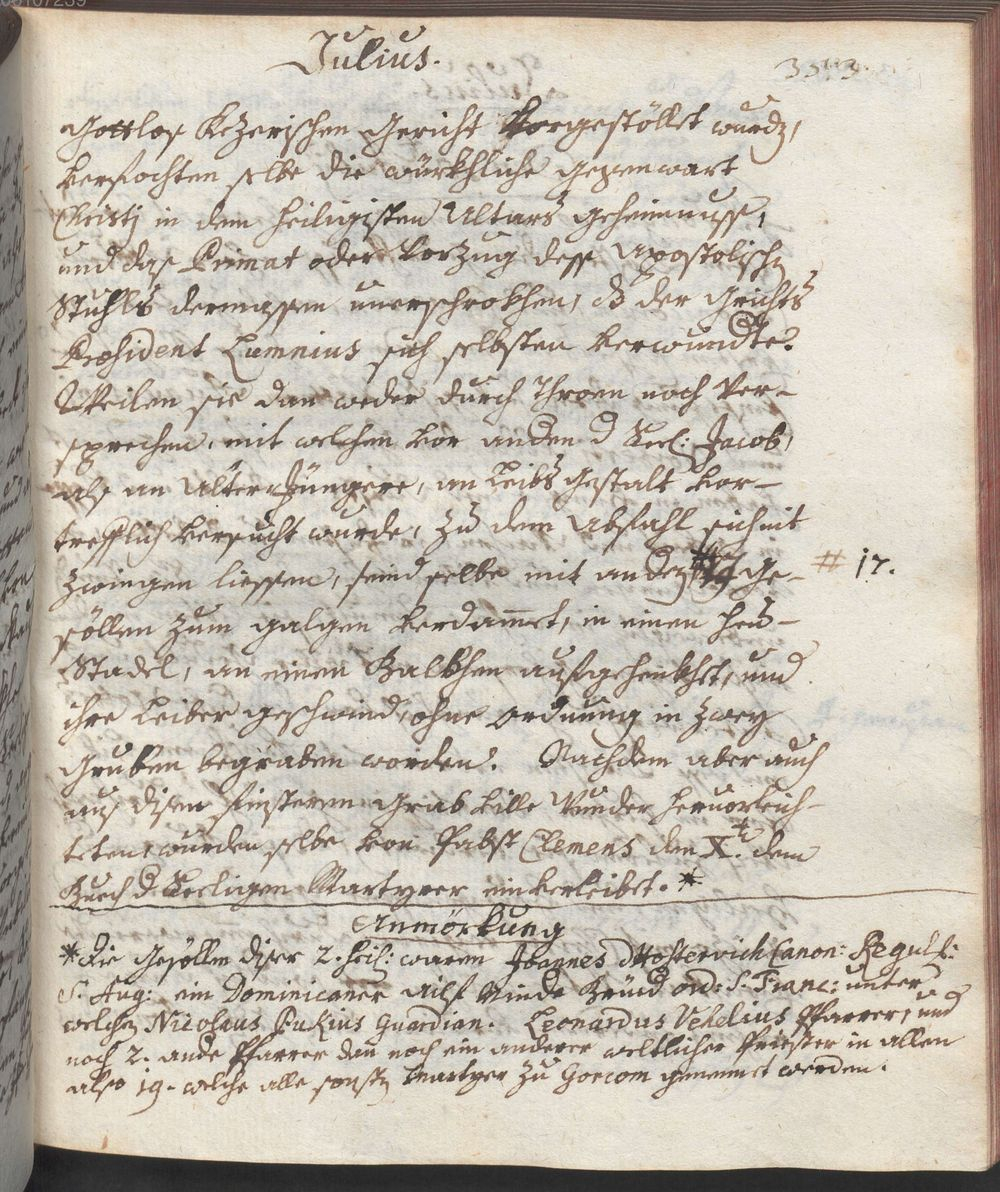 Julius.
Gottlos Kezerischen Gericht vorgestöllet wurdē,
verfochten selbe die würkhliche gegenwart
Christj in dem heiligisten Altars geheimnuss,
und das Primat oder Vorzug dess Apostolischē
Stuhls dermassen unerschrokhen, dz der Grichts
Præsident Lumnius sich selbsten verwundte.
Weilen sie dan weder durch Throen noch Ver-
sprechen, mit welchen vor anden d Seel: Jacob,
als an Alter Jüngere, an Leibs gestalt vor-
trefflich versucht wurde, zu dem Abfahl sich nit
zwingen liessen, seind selbe mit andeꝛ ge- # 17.
söllen zum galgen verdam̄et, in einen heü-
Stadel, an einen Balkhen aufgehenkhet, und
ihre Leiber geschwind, ohne ordnung in zwey
gruben begraben worden. Nachdem aber auch
aus disen finsteren Grab ville Wunder hervorleich-
teten, wurden selbe von Pabst Clemens dem X.t dem
Buech d. Seeligen Martyrer einverleibet. *
Anmörkung
* Die Gesöllen diser 2. heil: waren Joannes Osterwich Canon: Regul:
S. Aug: ein Dominicaner Minde Brüd ord: S. Franc: unter
welchen Nicolaus Pikius Guardian. Leonardus Vehelius Pfarrer, und
noch 2. ande Pfarrer dan noch ein anderer weltlicher Priester in allen
also 19. welche alle sonstē Martyer zu Gorcom genennet werden.